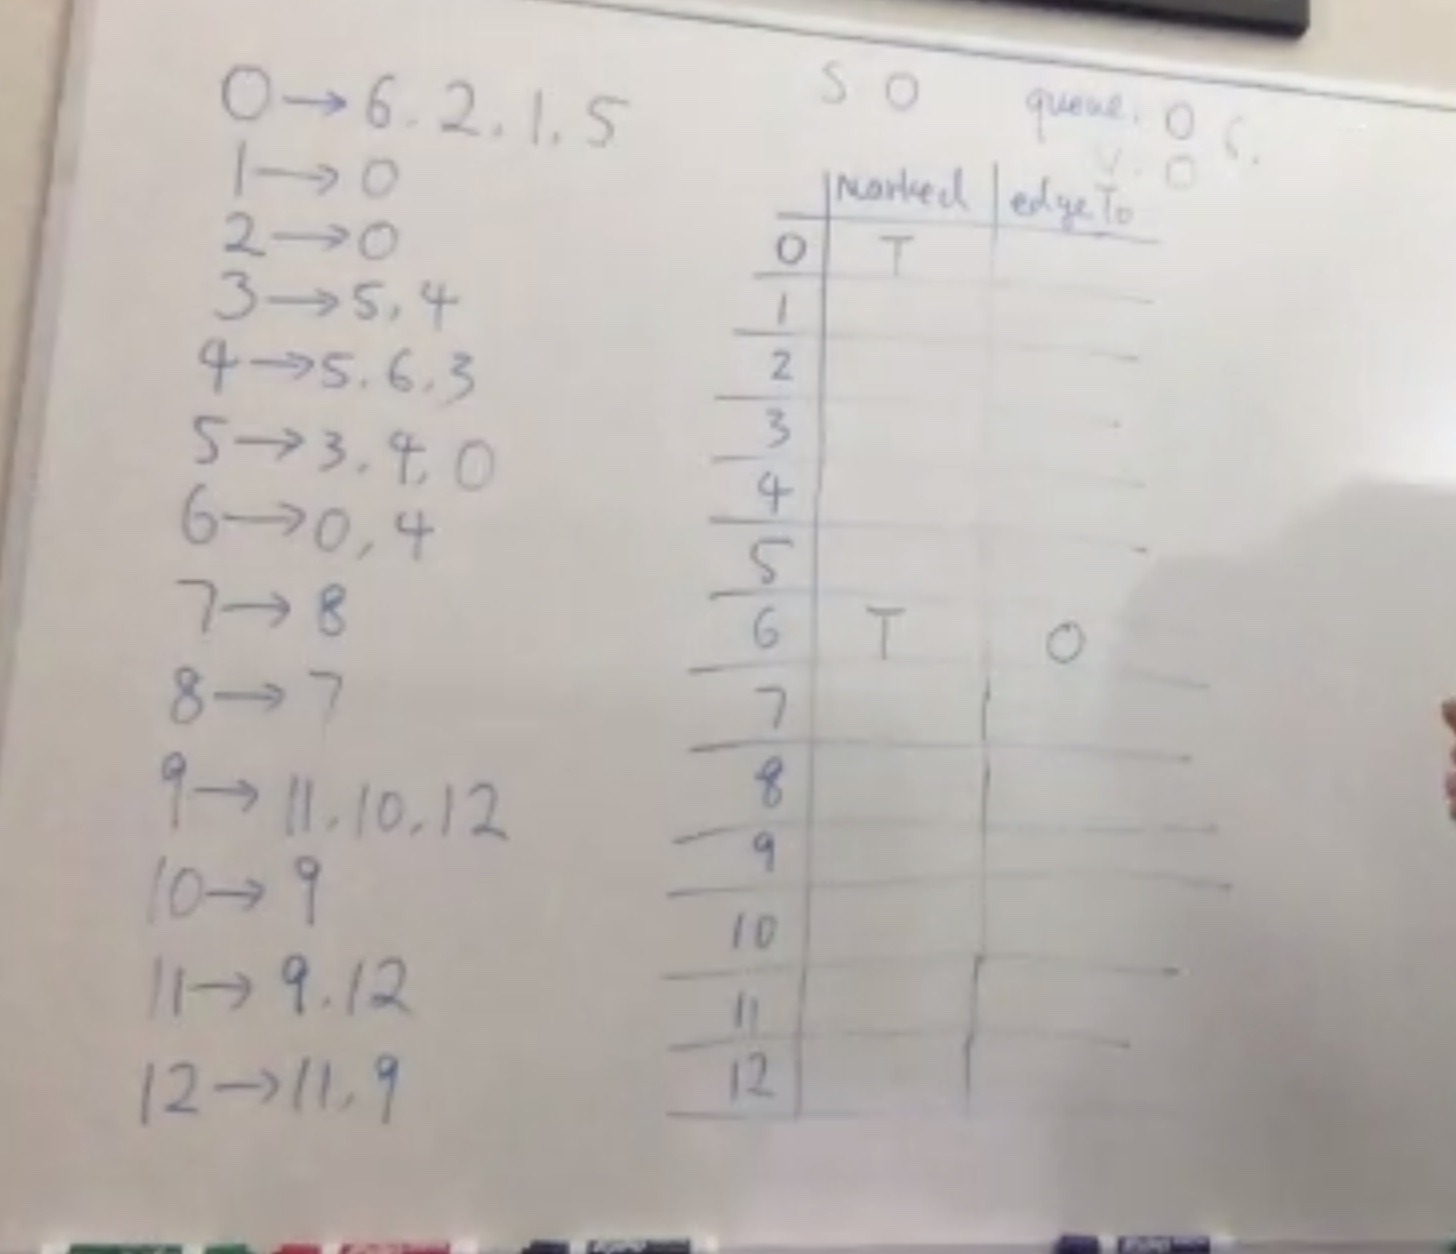 0→6.2.1.5
1→0
2→0
3→5,4
4→5.6.3
5→3.4,0
6→0,4
7→8
8→7
9→11.10.12
10→9
11→9.12
12→11.9
S 0 queue. 0 6.
v. 0
marked edgeTo
0 T
1
2
3
4
5
6 T 0
7
8
9
10
11
12